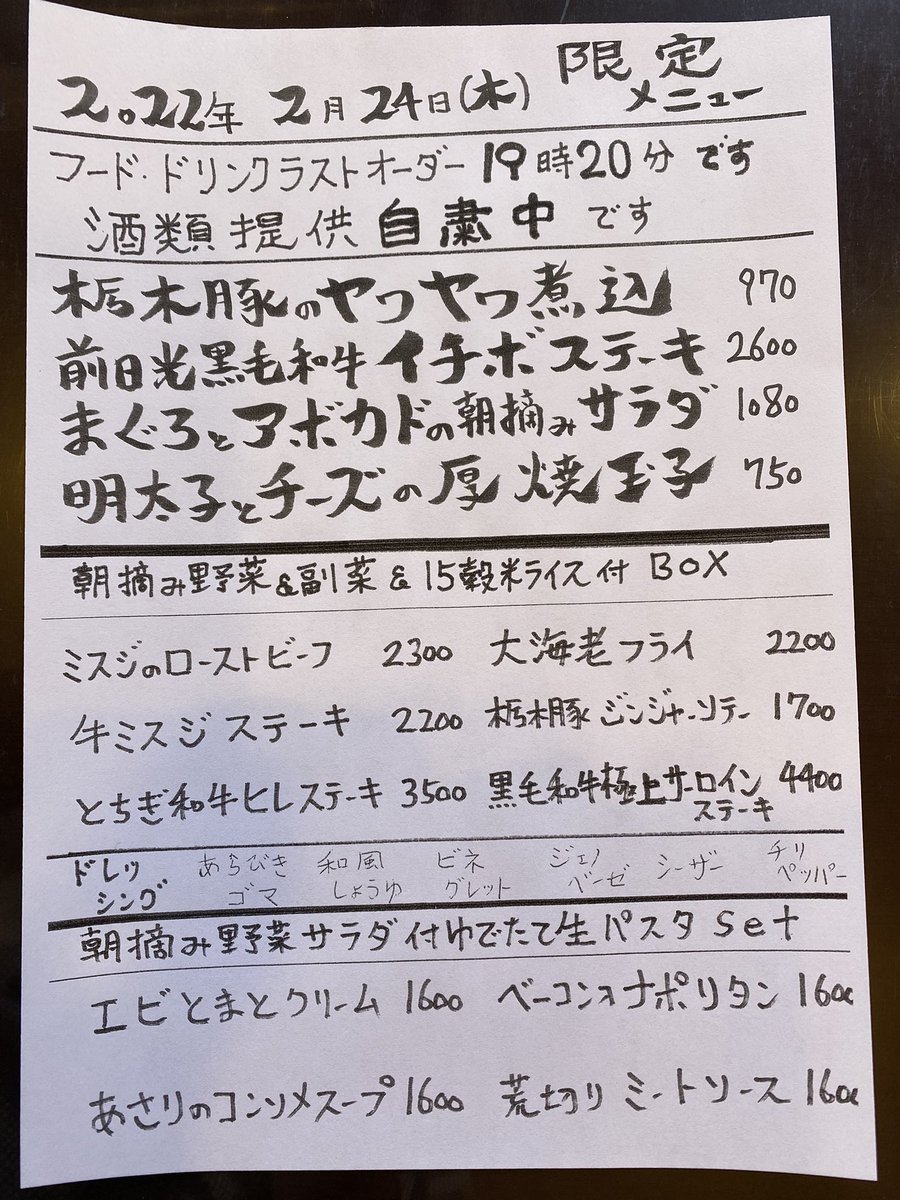 2022年 2月24日(木) 限定メニュー
フード・ドリンクラストオーダー 19時20分 です
酒類提供 自粛中 です
栃木豚のヤワヤワ煮込 970
前日光黒毛和牛 イチボステーキ 2600
まぐろとアボカドの朝摘みサラダ 1080
明太子とチーズの厚焼玉子 750
朝摘み野菜&副菜&15穀米ライス付 BOX
ミスジのローストビーフ 2300 大海老フライ 2200
牛ミスジステーキ 2200 栃木豚ジンジャーソテー 1700
とちぎ和牛ヒレステーキ 3500 黒毛和牛極上サーロインステーキ 4400
ドレッシング あらびきゴマ 和風しょうゆ ビネグレット ジェノベーゼ シーザー チリペッパー
朝摘み野菜サラダ付ゆでたて生パスタ set
エビとまとクリーム 1600 ベーコンのナポリタン 1600
あさりのコンソメスープ 1600 荒切りミートソース 1600